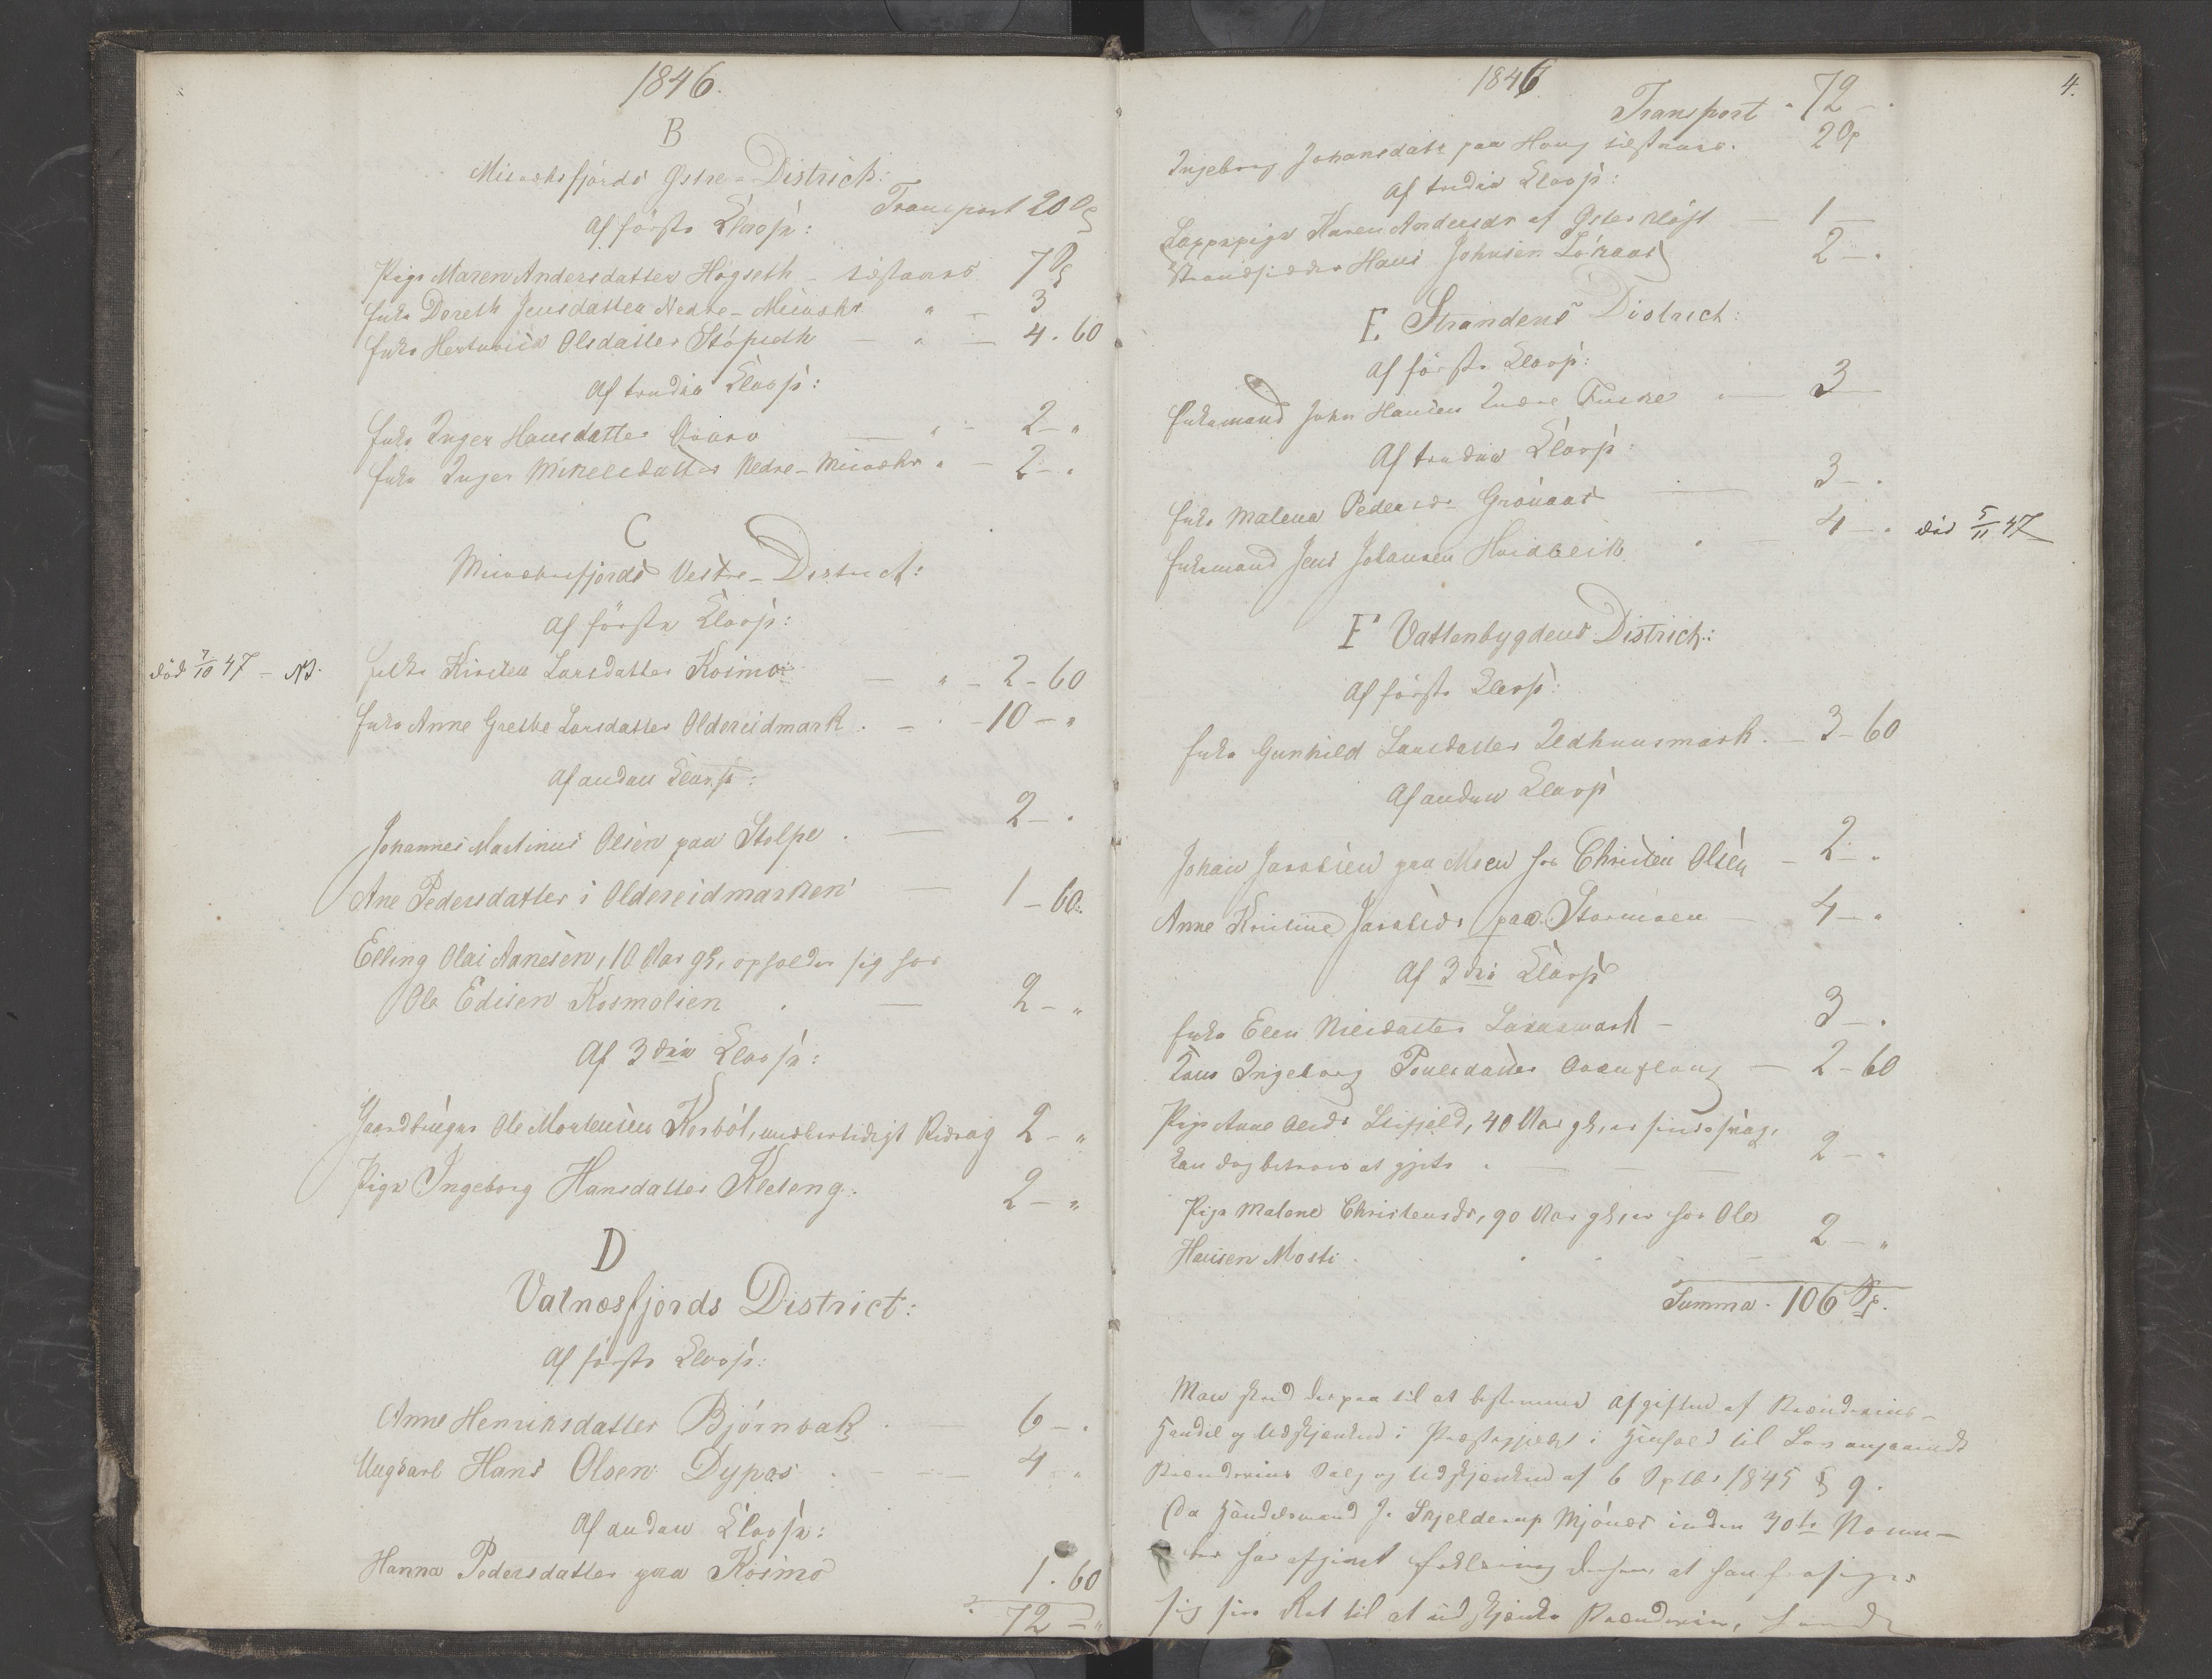 1846.
B
Misværfjords Østre-District:
Transport 20 Sp
Af første Classe:
Pige Maren Andersdatter Høgseth - ligesaa 7 Sp
Enke Doreth Jensdatter Nedre-Misvær " - 3
Enke Olsdatter Støpseth - " - 4. 60
Af tredie Classe:
Enke Inger Hansdatter - " - 2 - "
Enke Inger Mikelsdatter Nedre-Misvær " - 2 - "
C
Misværfjords Vestre-District:
Af første Classe:
død 7/10 47 - NB. Enke Kirsten Larsdatter Kosmo - " - 2 - 60
Enke Anne Grethe Larsdatter Oldereidmark . - . - 10 - "
Af anden Classe:
Johannes Martinus Olsen paa Stolpe . - 2 - "
Ane Pedersdatter i Oldereidmarken - 1 - 60.
Elling Olai Aanesen, 10 Aar gl, opholder sig hos
Ole Edisen Kosmolien . - 2 - "
Af 3die Classe:
Gaardbruger Ole Mortensen Kosböl, midlertidigt Bidrag 2 - "
Pige Ingeborg Hansdatter Kleteng. 2 - "
D
Valnæsfjords District:
Af første Classe:
Anne Henriksdatter Björnbak . - 6 - .
Ungkarl Hans Olsen Dypos . - 4 "
Af anden Classe:
Hanna Pedersdatter paa Kosmo 1. 60
72 - "
1846
4.
Transport . 72 - .
Ingeborg Johansdatr paa Houg ligesaa. 2 Sp
Af tredie Classe:
Lappepige Karen Andersdr af Østerkløft - 1 -
Strandsidder Hans Johnsen Løkaas 2 - .
E Strandens District:
Af første Classe:
Enkemand John Hansen Indre - 3 -
Af tredie Classe:
Enke Malena Pedersdr Grönaas - 3 - .
Enkemand Jens Johansen Hvidbeik . - 4 - . död 5/11 47
F Vattenbygdens District:
Af første Classe:
Enke Gunhild Larsdatter Ledhuusmark. - 3 - 60
Af anden Classe
Johan Jacobsen paa Moen hos Christen Olsen - 2 - "
Anne Kristine Jacobsdr paa Stormoen - 4 - "
Af 3die Classe
Enke Elen Nilsdatter - 3 - .
Kone Ingeborg Poulsdatter - 2 - 60
Pige Anne Olsdr Leifjeld, 40 Aar gl, er sindssvag,
kan dog betroes at gjete . - - 2 - "
Pige Malene Christensdr, 90 Aar gl, er hos Ole
Hansen Mosti . . . - 2 - "
Summa . 106 Sp.
Man skred derpaa til at bestemme Afgiften af Brændeviins-
Handel og Udskjenkned i Præstegjeldet i Henhold til Lov angaaende
Brændeviins Salg og Udskjenkned af 6 Septbr 1845 § 9.
Da Handelsmand J. Skjelderup Mjönæs inden 30te Novem-
ber har afgivet Erklæring derom at han frasiger
sig sin Ret til at udskjenke Brændeviin,